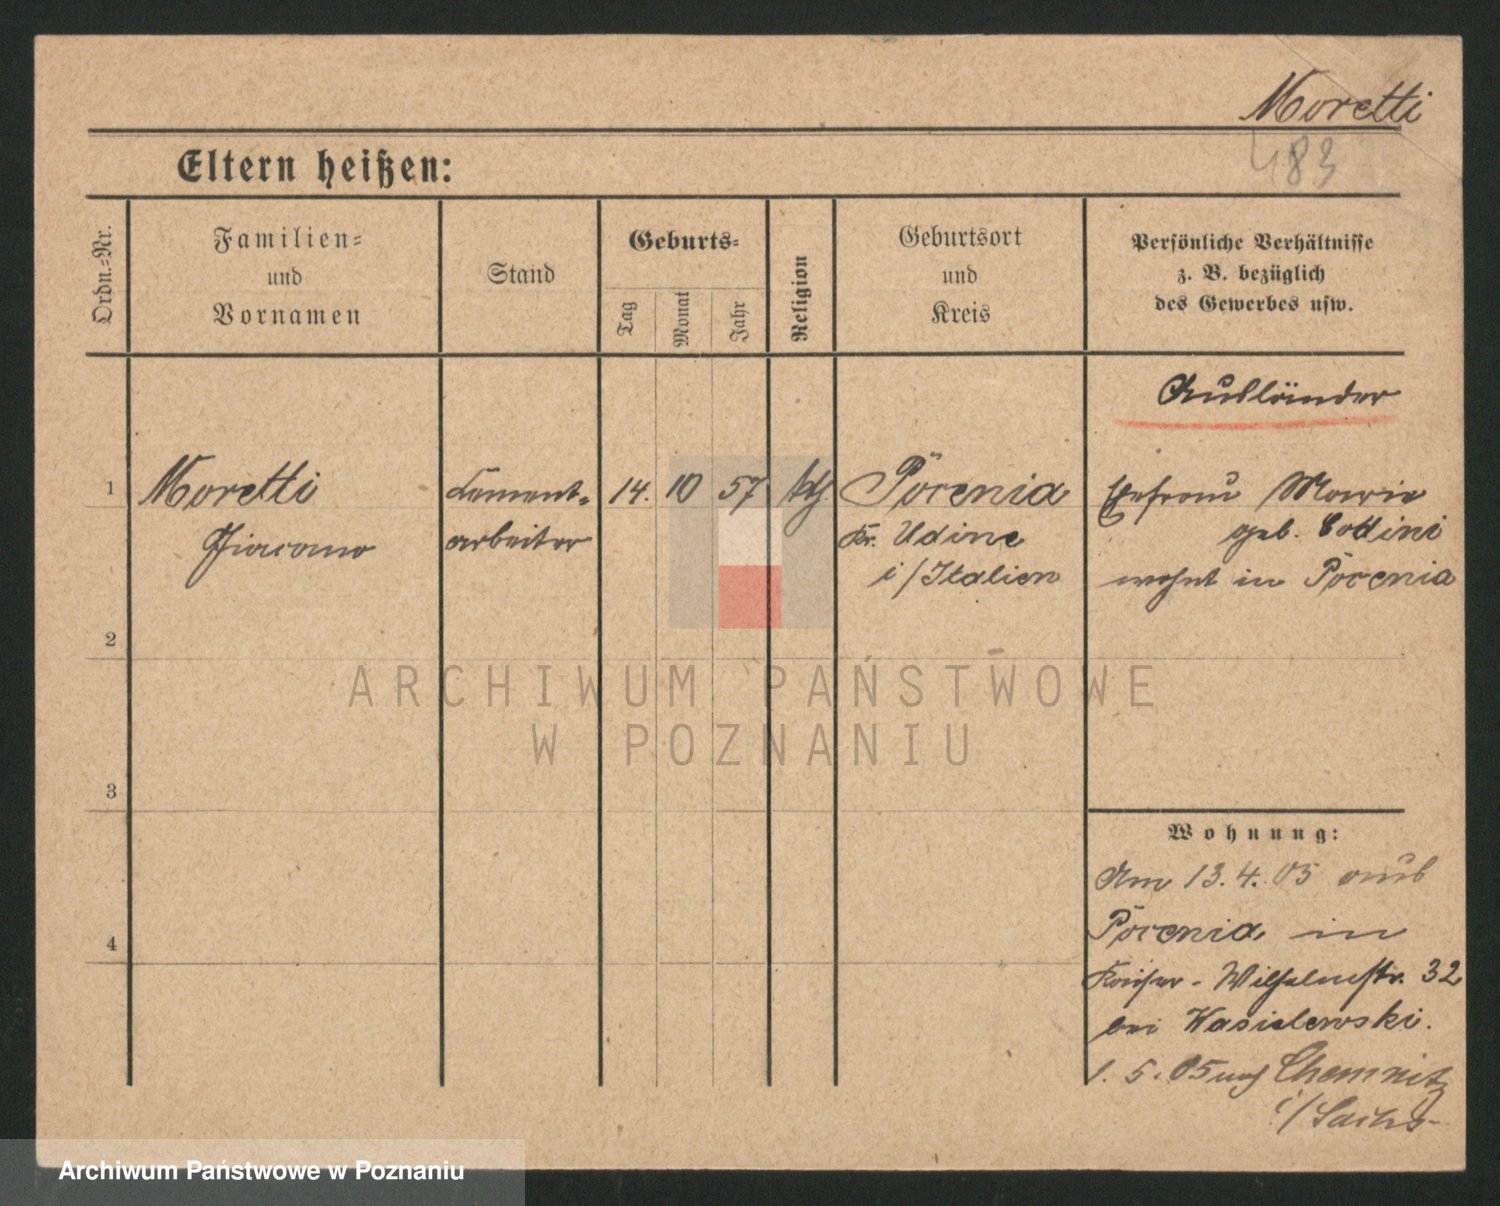 Moretti
483
Eltern heißen:
Ordn.-Nr.
Familien-
und
Vornamen
Stand
Geburts-
Tag
Monat
Jahr
Religion
Geburtsort
und
Kreis
Persönliche Verhältnisse
z. B. bezüglich
des Gewerbes usw.
Ausländer
1 Moretti Cement- 14. 10 57 kth. Pörenia Ehefrau Marie
Giacomo arbeiter Kr. Udine geb. Cottini
i/Italien wohnt in Pörenia
2
3
4
Wohnung:
Am 13.4.05 aus
Pörenia in
Kaiser-Wilhelmstr. 32
bei Wasielewski.
1.5.05 nach Chemnitz
i/Sachs-
ARCHIWUM PAŃSTWOWE
W POZNANIU
Archiwum Państwowe w Poznaniu